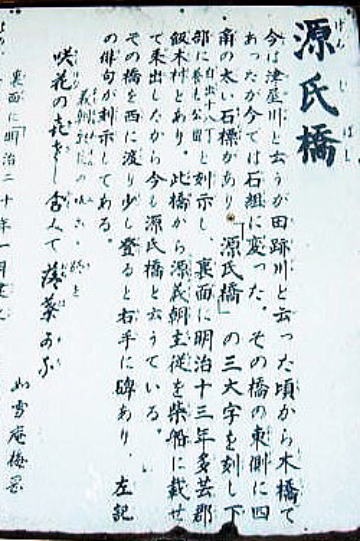 源氏橋
げんじばし
今は津屋川と云うが田跡川と云った頃から木橋で
あったが今では石組に変った。その橋の東側に四
角の太い石標があり「源氏橋」の三大字を刻し下
部に養老公園自出十八丁と刻示し、裏面に明治十三年多芸郡
飯木村とあり。此橋から源義朝主従を柴船に載せ
て乗出したから今も源氏橋と云うている。
その橋を西に渡り少し登ると右手に碑あり、左記
の俳句が刻示してある。
義朝
咲花の
如雪庵梅
裏面に明治二十年一月建